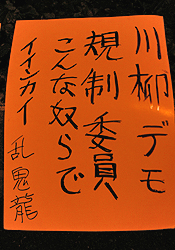 川柳デモ
規制委員
こんな奴らで
イインカイ 乱鬼龍